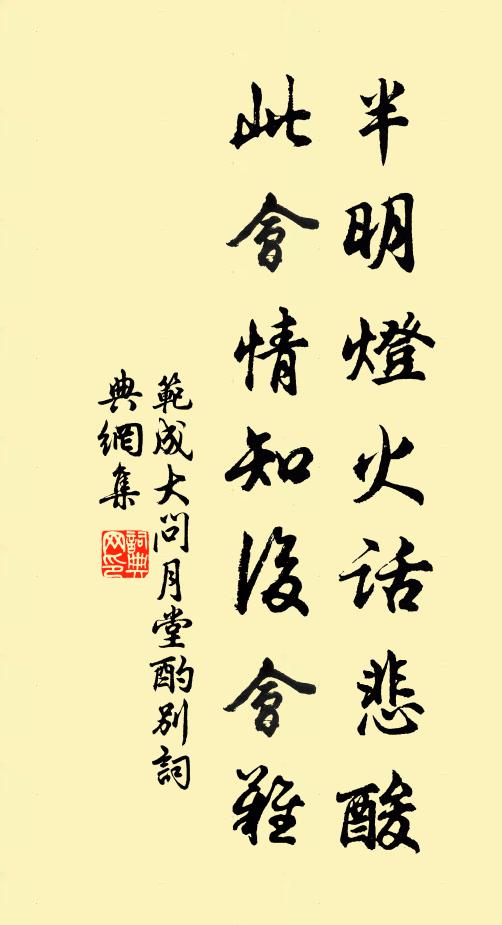 半明燈火話悲酸
此會情知後會難
範成大問月堂酌別詞
典網集
詞典
网印